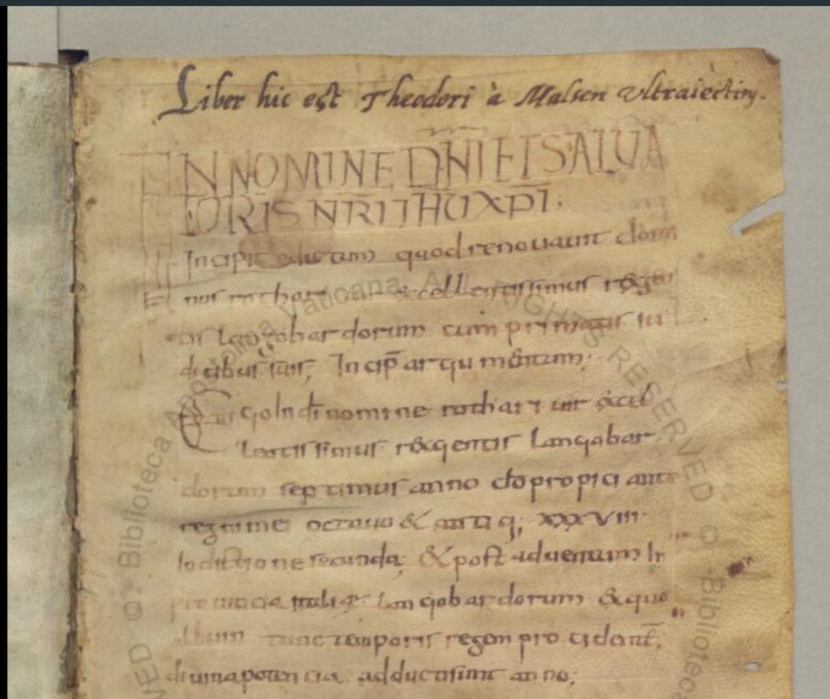 Liber hic est Theodori à Malsen Ultraiectiny.
IN NOMINE DNI ET SALVA
TORIS NRI IHU XPI;
Incipit edictum quod renouauit dom
nus rothari excellentissimus rex gen
tis langobardorum cum primatis iu
dicibus suis; Incip argumentum;
Ego In di nomine rothari uir excel
lentissimus rex gentis langobar
dorum septimus anno do propiciante
regni mei octauo & aetatis XXXVIII
Indictione secunda; & post aduentum In
prouincia italiae langobardorum & quo
Albuin tunc temporis regem procedente,
diuina potencia adducti sunt anno;
© Biblioteca Apostolica Vaticana. ALL RIGHTS RESERVED © Biblioteca